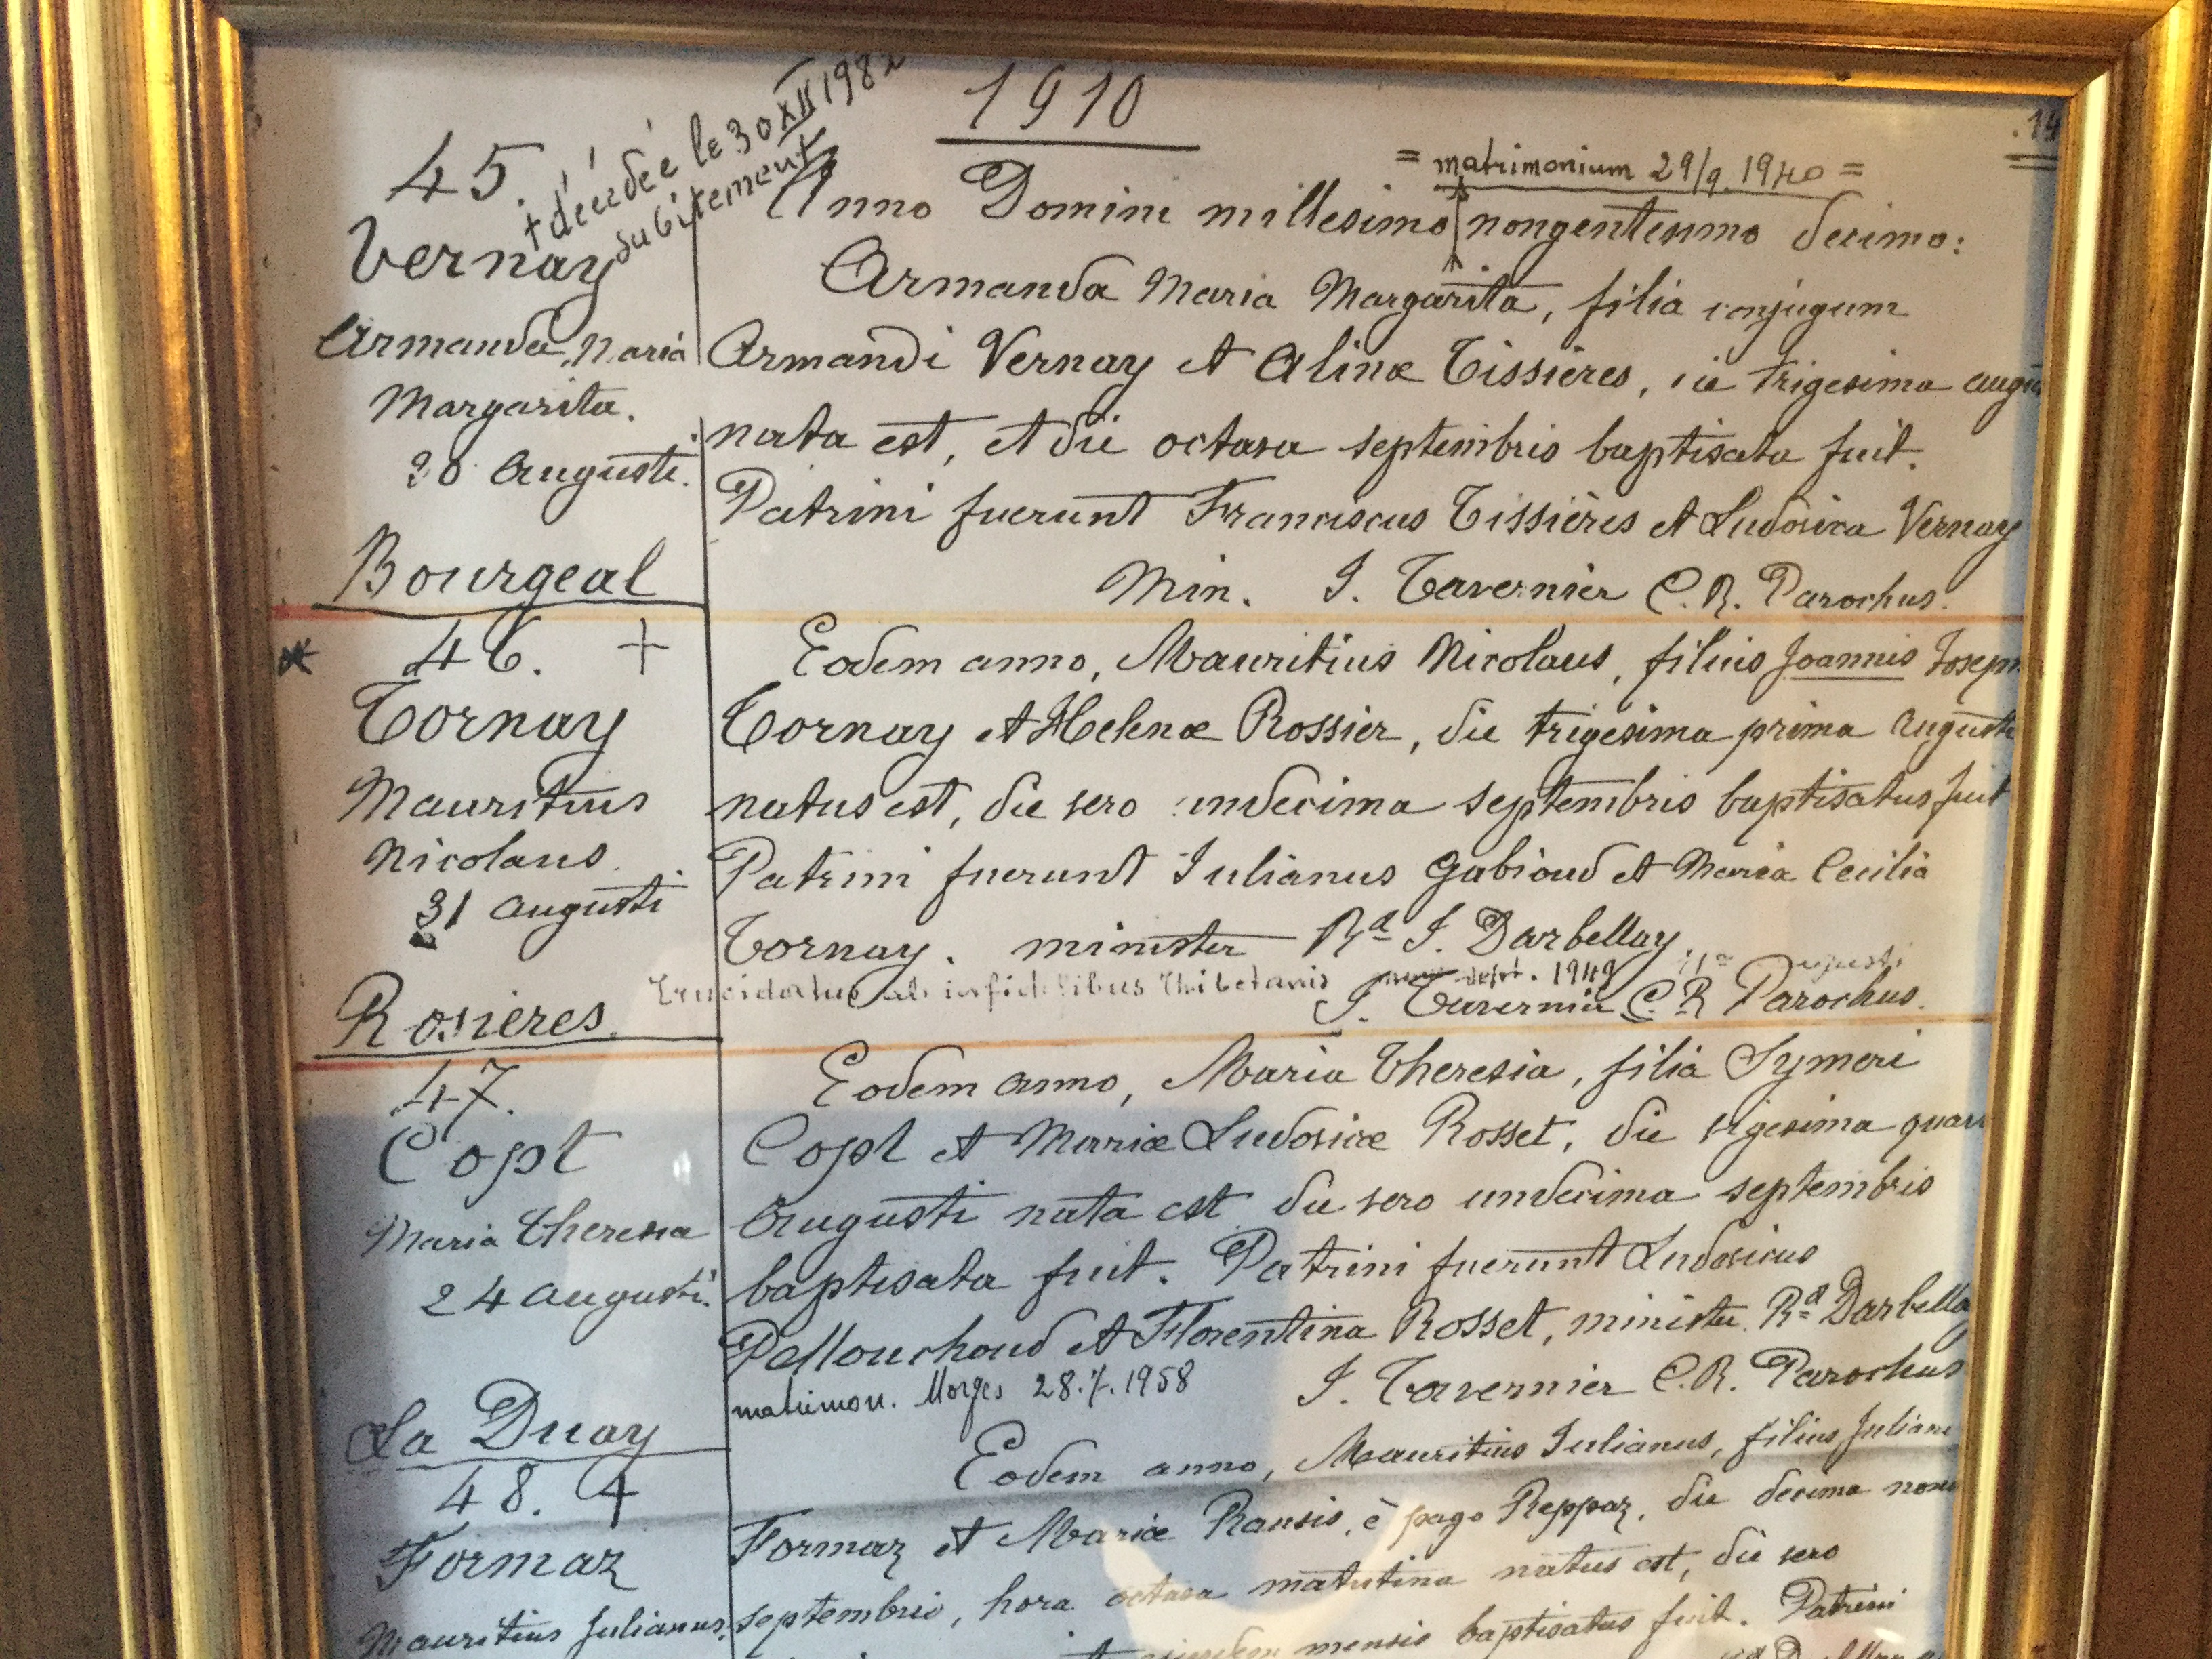 1910
.14
45.
† décédée le 30 XII 1982
subitement
Vernay
Armanda Maria
Margarita.
30 Augusti.
Bourgeal
= matrimonium 29/9. 1940 =
Anno Domini millesimo nongentesimo decimo:
Armanda Maria Margarita, filia conjugum
Armandi Vernay et Alinæ Tissières, die trigesima augu
nata est, et die octava septembris baptisata fuit.
Patrini fuerunt Franciscus Tissières et Ludovica Vernay
Min. J. Tavernier C.R. Parochus.
46. +
Tornay
Mauritius
Nicolaus.
31 Augusti
Rosières.
Eodem anno, Mauritius Nicolaus, filius Joannis Joseph
Tornay et Helenæ Rossier, die trigesima prima Augusti
natus est, die vero undecima septembris baptisatus fuit
Patrini fuerunt Julianus Gabioud et Maria Cecilia
Tornay. minister Rd J. Darbellay.
Trucidatus ab infidelibus Thibetanis sept. 1949 11a Augusti
J. Tavernier C.R Parochus.
47.
Copt
Maria Theresia
24 Augusti.
La Duay
Eodem anno, Maria Theresia, filia Symeri
Copt et Mariæ Ludovicæ Rosset, die vigesima quar
Augusti nata est die vero undecima septembris
baptisata fuit. Patrini fuerunt Ludovicus
Pellouchoud et Florentina Rosset, minister Rd Darbella
matrimon. Morges 28.7.1958
J. Tavernier C.R. Parochus
48. +
Formaz
Mauritius Julianus.
Eodem anno, Mauritius Julianus, filius Juliani
Formaz et Mariæ Rausis, è pago Reppaz, die decima nona
septembris, hora octava matutina natus est, die vero
ejusdem mensis baptisatus fuit. Patrini